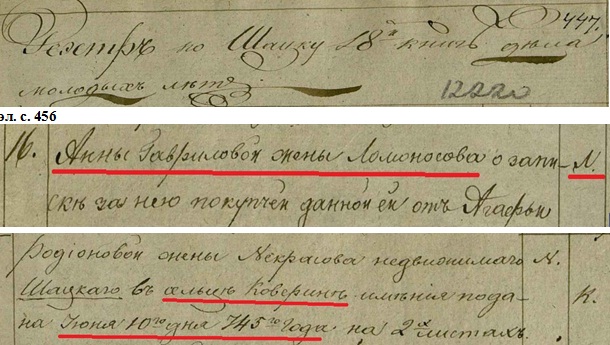 447.
Реэстръ по Шацку 18й книги дѣла
молодыхъ лѣтъ
12220
эл. с. 456
16. Анны Гавриловой жены Ломоносова о запи- Л.
скѣ за нею купчей данной ей отъ Агафьи
Родіоновой жены Некрасова недвижимаго N.
Шацкаго въ сельцѣ Коверинѣ имѣнія пода- К.
на Іюня 10го дня 745го года на 2хъ листахъ.